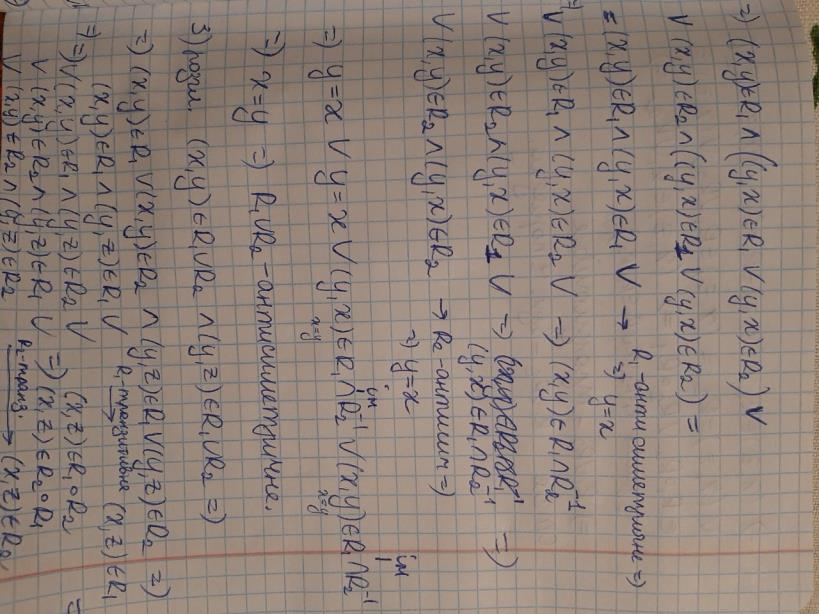 =) (x,y)∈R₁ ∧ ((y,x)∈R₁ ∨ (y,x)∈R₂) ∨
∨ (x,y)∈R₂ ∧ ((y,x)∈R₁ ∨ (y,x)∈R₂) =
= (x,y)∈R₁ ∧ (y,x)∈R₁ ∨ → R₁-антисиметричне =) =) y=x
∨ (x,y)∈R₁ ∧ (y,x)∈R₂ ∨ =) (x,y)∈R₁∩R₂⁻¹
∨ (x,y)∈R₂ ∧ (y,x)∈R₁ ∨ =) (y,x)∈R₁∩R₂⁻¹ =)
∨ (x,y)∈R₂ ∧ (y,x)∈R₂ → R₂-антисим =) =) y=x
=) y=x ∨ y=x ∨ (y,x)∈R₁∩R₂⁻¹ ∨ (x,y)∈R₁∩R₂⁻¹
x=y x=y
=) x=y =) R₁∪R₂-антисиметричне.
3) (x,y)∈R₁∪R₂ ∧ (y,z)∈R₁∪R₂ =)
=) (x,y)∈R₁ ∨ (x,y)∈R₂ ∧ (y,z)∈R₁ ∨ (y,z)∈R₂ =)
(x,y)∈R₁ ∧ (y,z)∈R₁ ∨ R₁-транзитивне → (x,z)∈R₁
=) ∨ (x,y)∈R₁ ∧ (y,z)∈R₂ ∨ (x,z)∈R₁∘R₂
∨ (x,y)∈R₂ ∧ (y,z)∈R₁ ∨ =) (x,z)∈R₂∘R₁ =
∨ (x,y)∈R₂ ∧ (y,z)∈R₂ R₂-транз. → (x,z)∈R₂